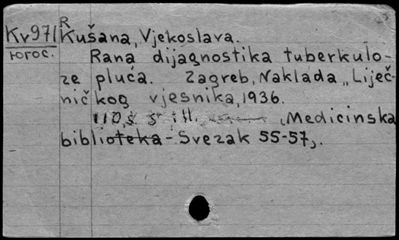 Kv971 R Kušana, Vjekoslava.
югос. Rana dijagnostika tuberkulo-
ze pluća. Zagreb, Naklada „Liječ-
ničkog vjesnika, 1936.
110, s ill. (Medicinska
biblioteka - Svezak 55-57).